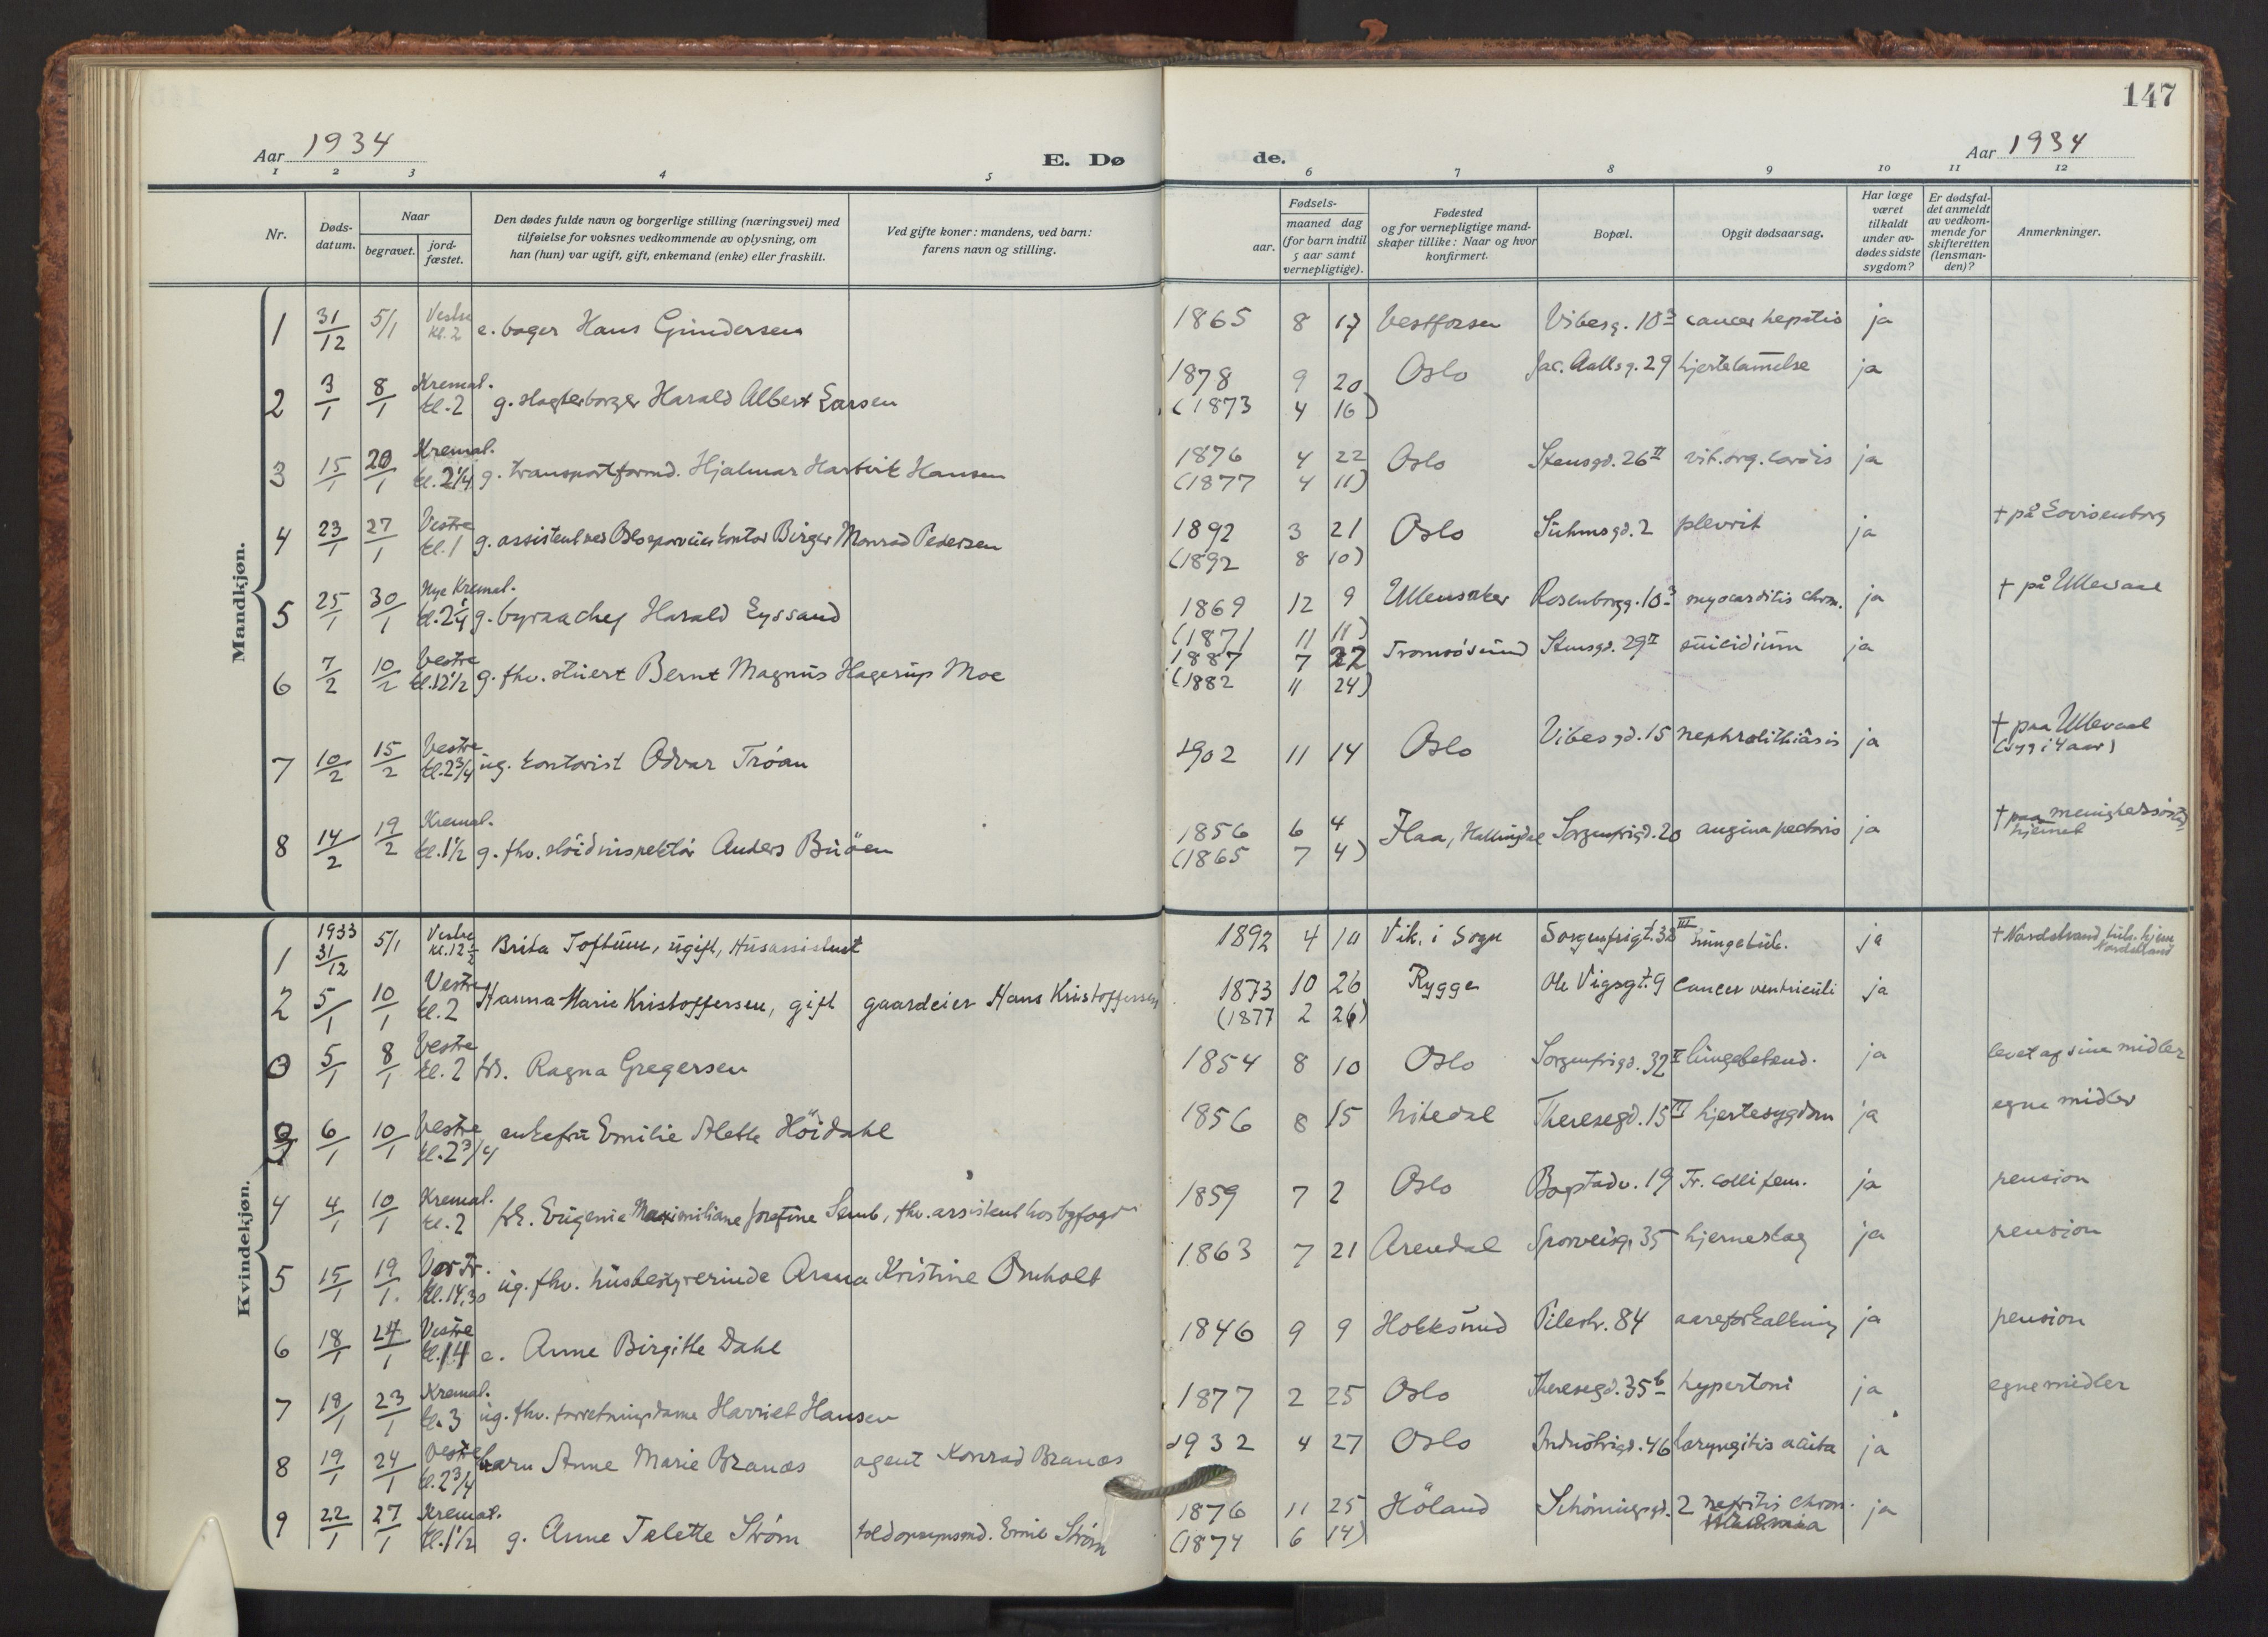 147
Aar 1934 E. Dø de. Aar 1934
1 2 3 4 5 6 7 8 9 10 11 12
Nr.
Døds-
datum.
Naar
begravet.
jord-
fæstet.
Den dødes fulde navn og borgerlige stilling (næringsvei) med
tilføielse for voksnes vedkommende av oplysning, om
han (hun) var ugift, gift, enkemand (enke) eller fraskilt.
Ved gifte koner: mandens, ved barn:
farens navn og stilling.
Fødsels-
aar.
maaned dag
(for barn indtil
5 aar samt
vernepligtige).
Fødested
og for vernepligtige mand-
skaper tillike: Naar og hvor
konfirmert.
Bopæl.
Opgit dødsaarsag.
Har læge
været
tilkaldt
under av-
dødes sidste
sygdom?
Er dødsfal-
det anmeldt
av vedkom-
mende for
skifteretten
(lensman-
den)?
Anmerkninger.
Mandkjøn.
1 31/12 5/1 Vestre kl. 2 e. bager Hans Gundersen 1865 8 17 Vestfossen Vibesg. 10 3 cancer hepatis ja
2 3/1 8/1 Kremat. kl. 2 g. slagterborger Harald Albert Larsen 1878 9 20 Oslo Jac. Aallsg. 29 hjertelammelse ja
(1873 4 16)
3 15/1 20/1 Kremat. kl. 2 1/4 g. transportformd. Hjalmar Hartvik Hansen 1876 4 22 Oslo Stensgd. 26 II vit. org. cordis ja
(1877 4 11)
4 23/1 27/1 Vestre kl. 1 g. assistent ved Oslo sporveiers kontor Birger Monrad Pedersen 1892 3 21 Oslo Suhmsgd. 2 plevrit ja † på Lovisenborg
(1892 8 10)
5 25/1 30/1 Nye Kremat. kl. 2 1/4 g. byraachef Harald Eyssand 1869 12 9 Ullensaker Rosenborgg. 10 3 myocarditis chron. ja † på Ullevaal
(1871 11 11)
6 7/2 10/2 Vestre kl. 12 1/2 g. fhv. stuert Bernt Magnus Hagerup Moe 1887 7 22 Tromsøsund Stensgd. 29 II suicidium ja
(1882 11 24)
7 10/2 15/2 Vestre kl. 2 3/4 ug. kontorist Odvar Tróan 1902 11 14 Oslo Vibesgd. 15 nephrolithiasis ja † paa Ullevaal
(syg i 4 aar)
8 14/2 19/2 Kremat. kl. 1 1/2 g. fhv. sløidinspektør Anders Buöen 1856 6 4 Flaa, Hallingdal Sorgenfrigd. 20 angina pectoris ja † paa menighetssøster
hjemmet
(1865 7 4)
Kvindekjøn.
1 1933 31/12 5/1 Vestre kl. 12 1/2 Brita Toftum, ugift, Husassistent 1892 4 10 Vik, i Sogn Sorgenfrigt. 32 III Lungetub. ja † Nordstrand tub. hjem
Nordstrand
2 5/1 10/1 Vestre kl. 2 Hanna Marie Kristoffersen, gift gaardeier Hans Kristoffersen 1873 10 26 Rygge Ole Vigsgt. 9 Cancer ventriculi ja
(1877 2 26)
5/1 8/1 Vestre kl. 2 frk. Ragna Gregersen 1854 8 10 Oslo Sorgenfrigd. 32 II lungebetend. ja levet af sine midler
3 6/1 10/1 Vestre kl. 2 3/4 enkefru Emilie Alette Höidahl 1856 8 15 Nitedal Theresegd. 15 III hjertesygdom ja egne midler
4 4/1 10/1 Kremat. kl. 2 frk. Eugenie Maximiliane Josefine Semb, fhv. assistent hos byfogd 1859 7 2 Oslo Bogstadv. 19 Fr. colli fem. ja pension
5 15/1 19/1 Vor Fr. kl. 14,30 ug. fhv. husbestyrerinde Anna Kristine Omholt 1863 7 21 Arendal Sporveisg. 35 hjerneslag ja pension
6 18/1 24/1 Vestre kl. 14 e. Anne Birgitte Dahl 1846 9 9 Hokksund Pilestr. 84 aareforkalkning ja pension
7 18/1 23/1 Kremat. kl. 3 ug. fhv. forretningsdame Harriet Hansen 1877 2 25 Oslo Theresegd. 35 b hypertoni ja egne midler
8 19/1 24/1 Vestre kl. 2 3/4 barn Anne Marie Branæs agent Konrad Branæs 1932 4 27 Oslo Industrigd. 46 laryngitis acuta ja
9 22/1 27/1 Kremat. kl. 1 1/2 g. Anne Talette Strøm toldopsynsmd. Emil Strøm 1876 11 25 Höland Schøningsgd. 2 nefritis chron. ja
(1874 6 14)